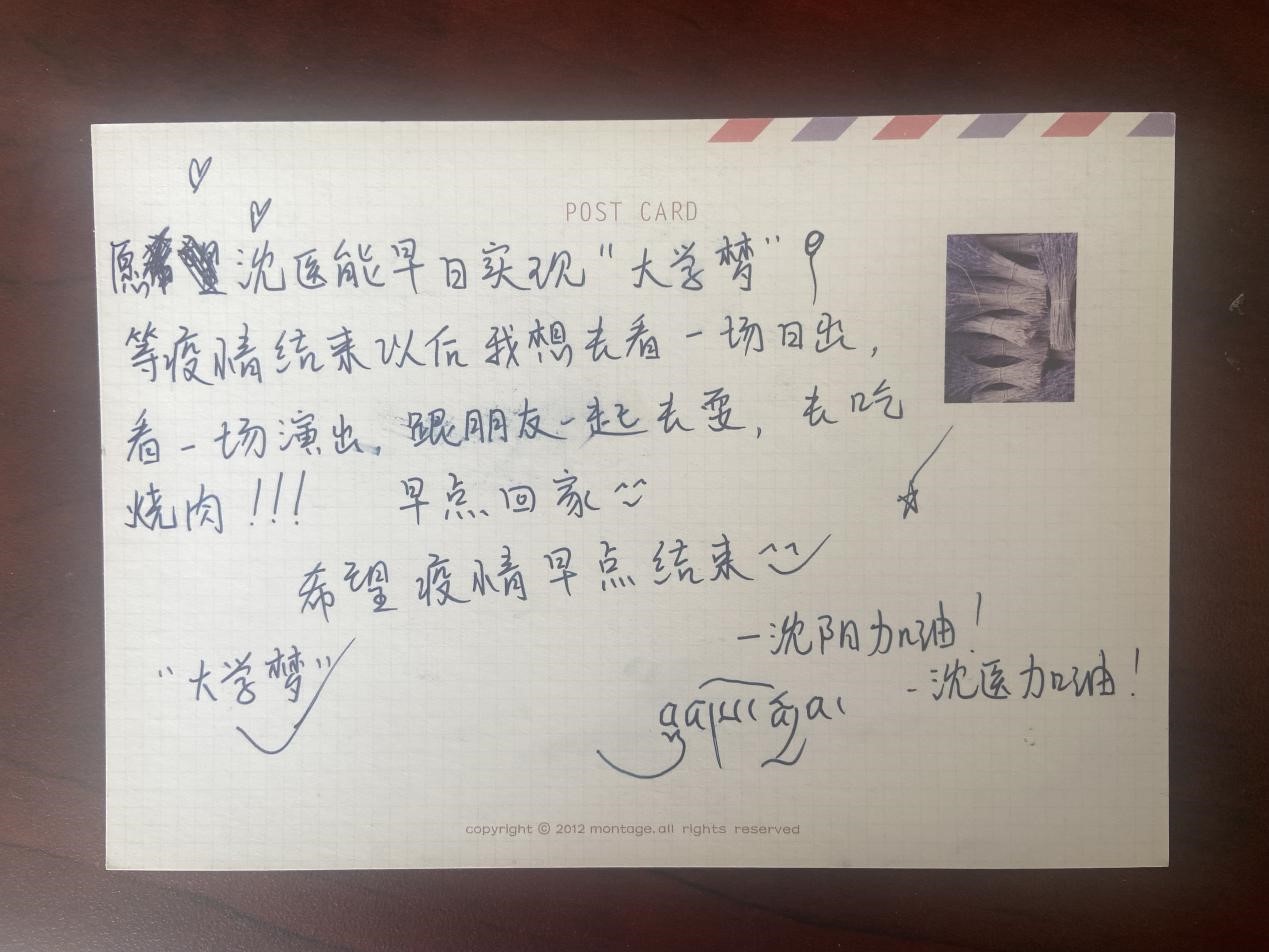 POST CARD
愿沈医能早日实现“大学梦”
等疫情结束以后我想去看一场日出，
看一场演出，跟朋友一起去耍，去吃
烧肉！！！ 早点回家
希望疫情早点结束
-沈阳加油！
-沈医加油！
“大学梦”
copyright © 2012 montage. all rights reserved